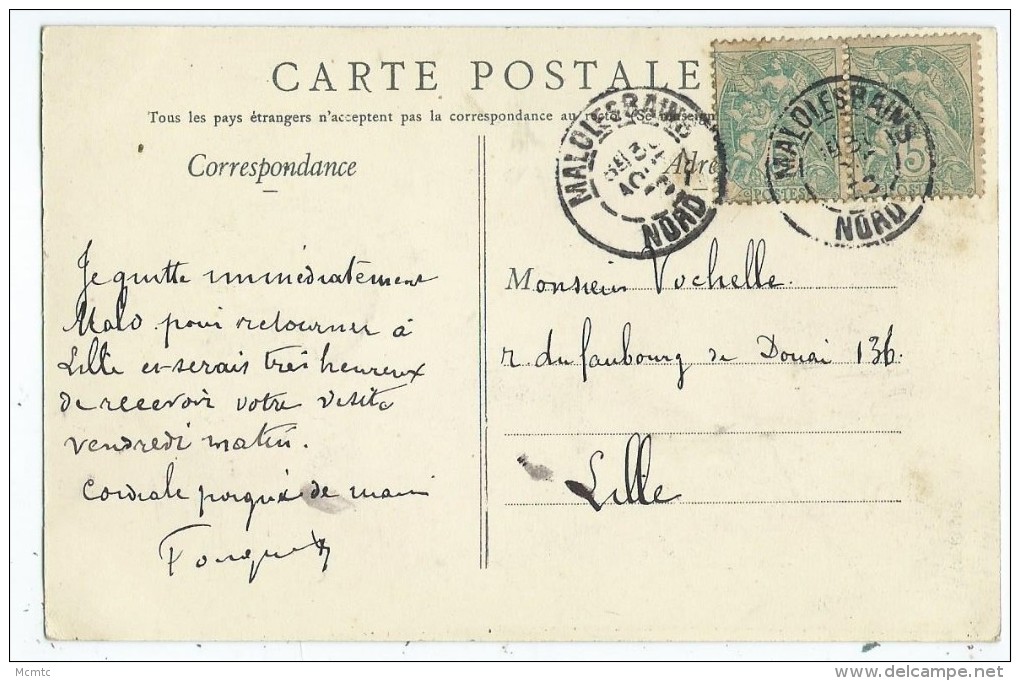 CARTE POSTALE
Tous les pays étrangers n'acceptent pas la correspondance au recto. (Se renseign
Correspondance
Adre
MALO LES BAINS
NORD
MALO LES BAINS
NORD
5
POSTES
POSTES
Je quitte immédiatement
Malo pour retourner à
Lille et serais très heureux
de recevoir votre visite
vendredi matin.
Cordiale poignée de main
Monsieur Vochelle.
r. du faubourg de Douai 136.
Lille
Mcmtc
delcampe.net